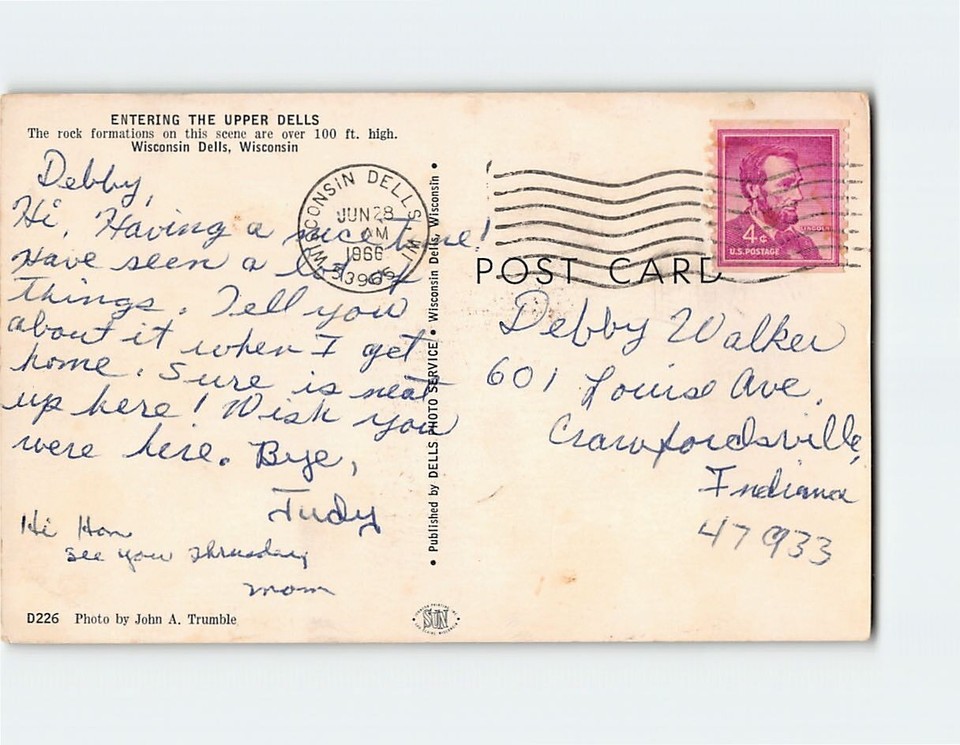 ENTERING THE UPPER DELLS
The rock formations on this scene are over 100 ft. high.
Wisconsin Dells, Wisconsin
Debby,
Hi, Having a nice time!
Have seen a lot of
things. Tell you
about it when I get
home. Sure is neat
up here! Wish you
were here. Bye,
Judy
Hi Hon
see you Thrusday
mom
D226 Photo by John A. Trumble
• Published by DELLS PHOTO SERVICE • Wisconsin Dells, Wisconsin •
WISCONSIN DELLS, WI
JUN 28
AM
1966
53965
SUN
POST CARD
4¢
LINCOLN
U.S. POSTAGE
Debby Walker
601 Louise Ave.
Crawfordsville,
Indiana
47933